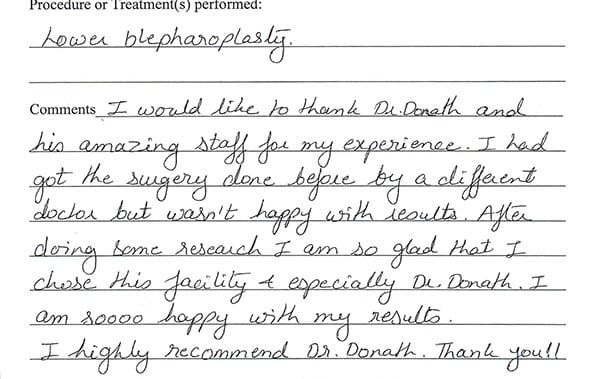 Procedure or Treatment(s) performed:
Lower blepharoplasty.
Comments I would like to thank Dr. Donath and
his amazing staff for my experience. I had
got the surgery done before by a different
doctor but wasn't happy with results. After
doing some research I am so glad that I
chose this facility & especially Dr. Donath. I
am soooo happy with my results.
I highly recommend Dr. Donath. Thank you!!